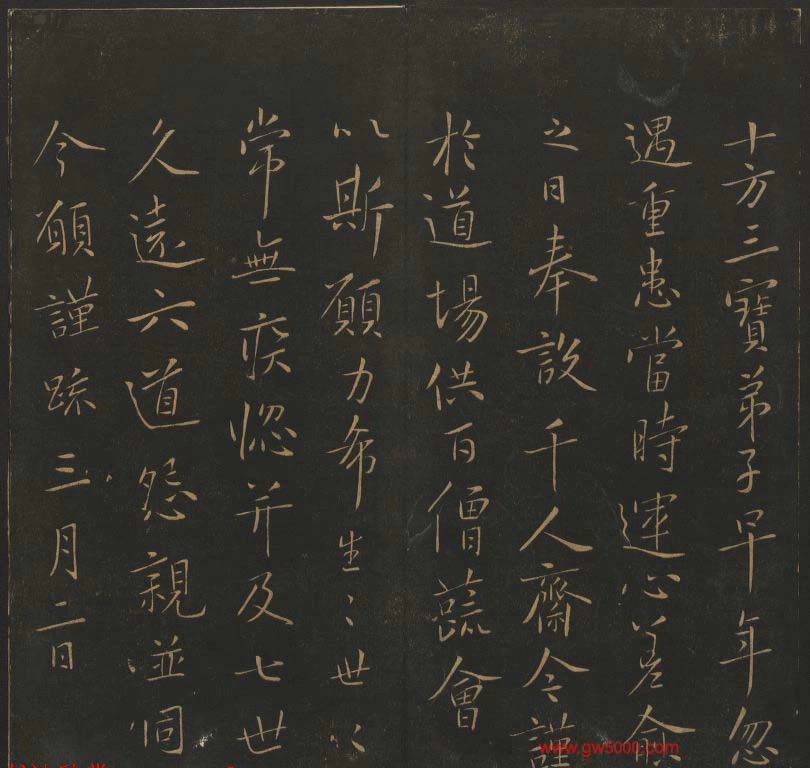 十方三寶弟子早年忽
遇重患當時運心差愈
之日奉設千人齋今謹
於道場供百僧蔬會
以斯願力希生〻世〻
常無疾惱并及七世
久遠六道怨親並同
今願謹疏三月二日
www.gw5000.com